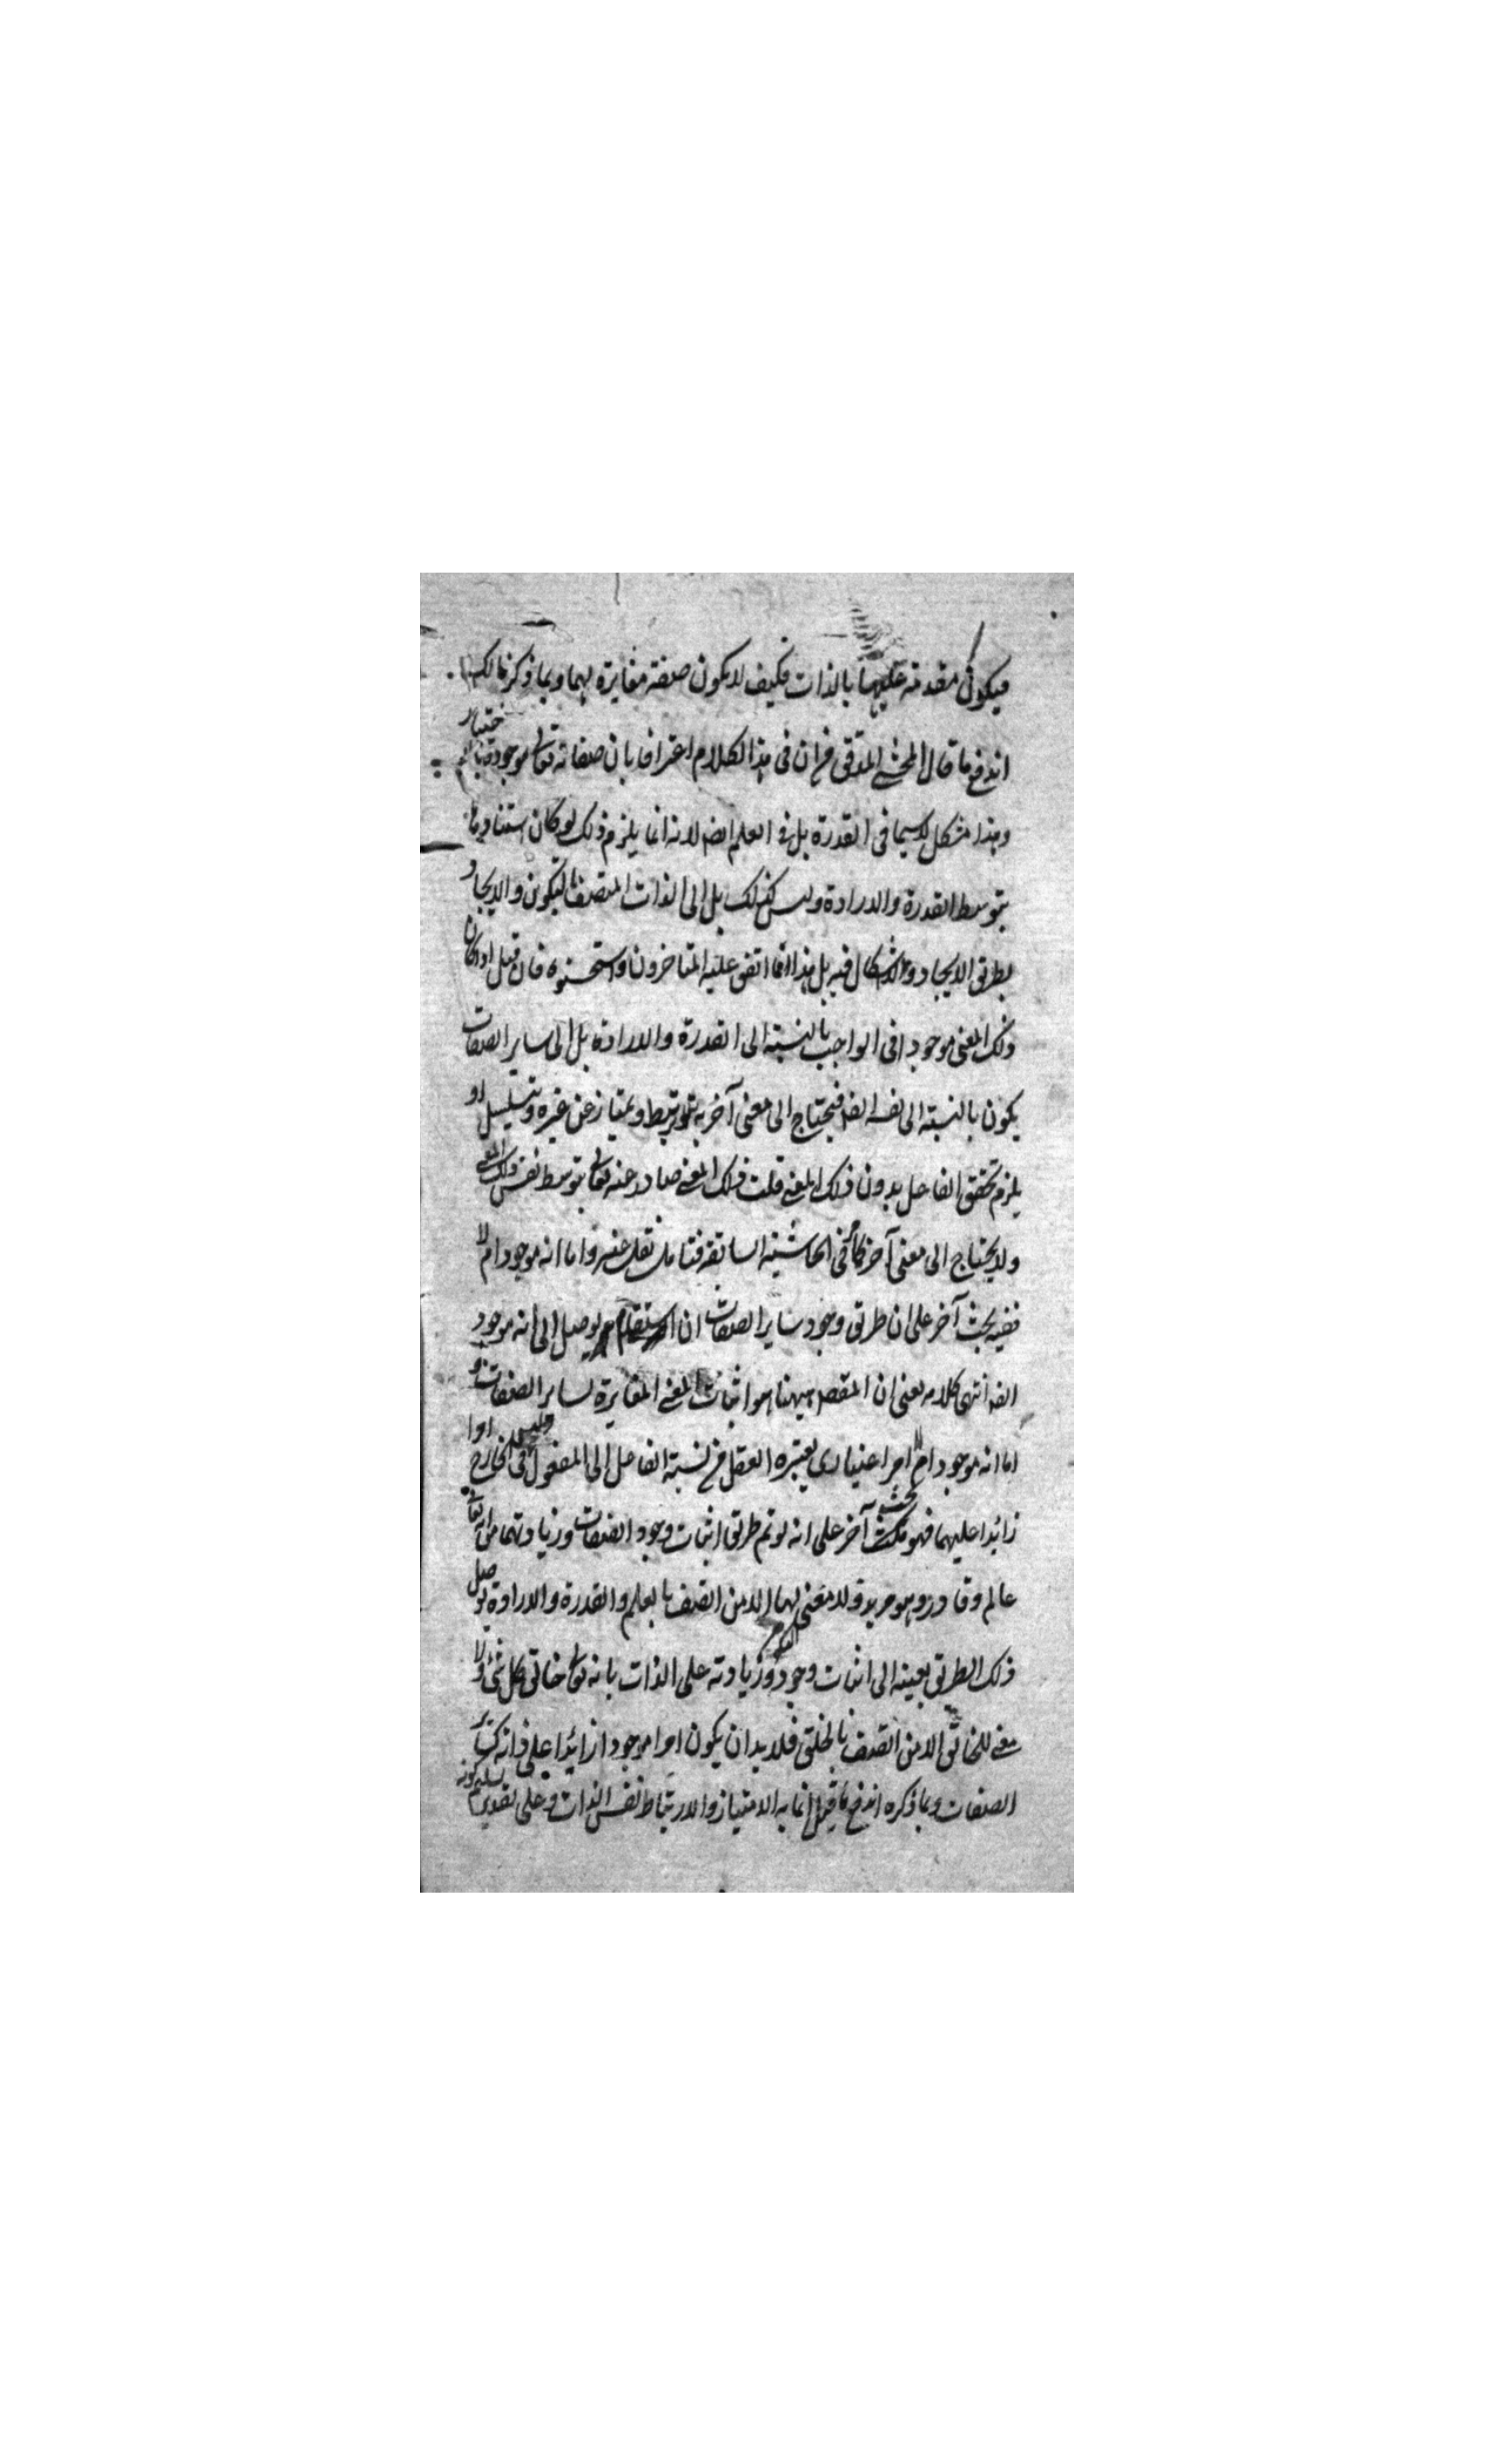 فيكون مقدمة عليهما بالذات فكيف لا يكون صفة مغايرة لهما وبما ذكرنا لك
اندفع ما قال المحشي المدقق من ان في هذا الكلام اعترافا بان صفاته تعالى موجودة بالاختيار
وهذا مشكل لا سيما في القدرة بل في العلم ايضا لانه انما يلزم ذلك لو كان استنادها
بتوسط القدرة والارادة وليس كذلك بل الى الذات المتصف بالتكوين والايجاد
بطريق الايجاد ولا اشكال فيه بل هذا مما اتفق عليه المتاخرون واستحسنوه فان قيل اذا كان
ذلك المعنى موجودا في الواجب بالنسبة الى القدرة والارادة بل الى ساير الصفات
يكون بالنسبة الى نفسه ايضا فيحتاج الى معنى آخر به يرتبط ويمتاز عن غيره ويتسلسل او
يلزم تحقق الفاعل بدون ذلك المعنى قلت ذلك المعنى صادر عنه تعالى بتوسط نفس ذلك المعنى
ولا يحتاج الى معنى آخر كما في الحاشية السابقة فتامل نقل عنه واما انه موجود ام لا
ففيه بحث آخر على ان طريق وجود ساير الصفات ان استقام يوصل الى انه موجود
ايضا انتهى كلامه يعنى ان المقصد ههنا هو اثبات المعنى المغايرة لساير الصفات و
اما انه موجود ام لا امر اعتبارى يعتبره العقل من نسبة الفاعل الى المفعول وليس في الخارج امرا
زائدا عليهما فهو بحث آخر على انه لو تم طريق اثبات وجود الصفات وزيادتها من انه تعالى
عالم وقادر وهو مريد ولا معنى لها الا من اتصف بالعلم والقدرة والارادة يوصل
ذلك الطريق بعينه الى اثبات وجود وزيادته على الذات بانه تعالى خالق كل شئ ولا
معنى للخالق الا من اتصف بالخلق فلا بد ان يكون امرا موجودا زائدا على ذاته كساير
الصفات وبما ذكره اندفع ما قيل انما به الامتياز والارتباط نفس الذات وعلى تقدير تسليم كونه